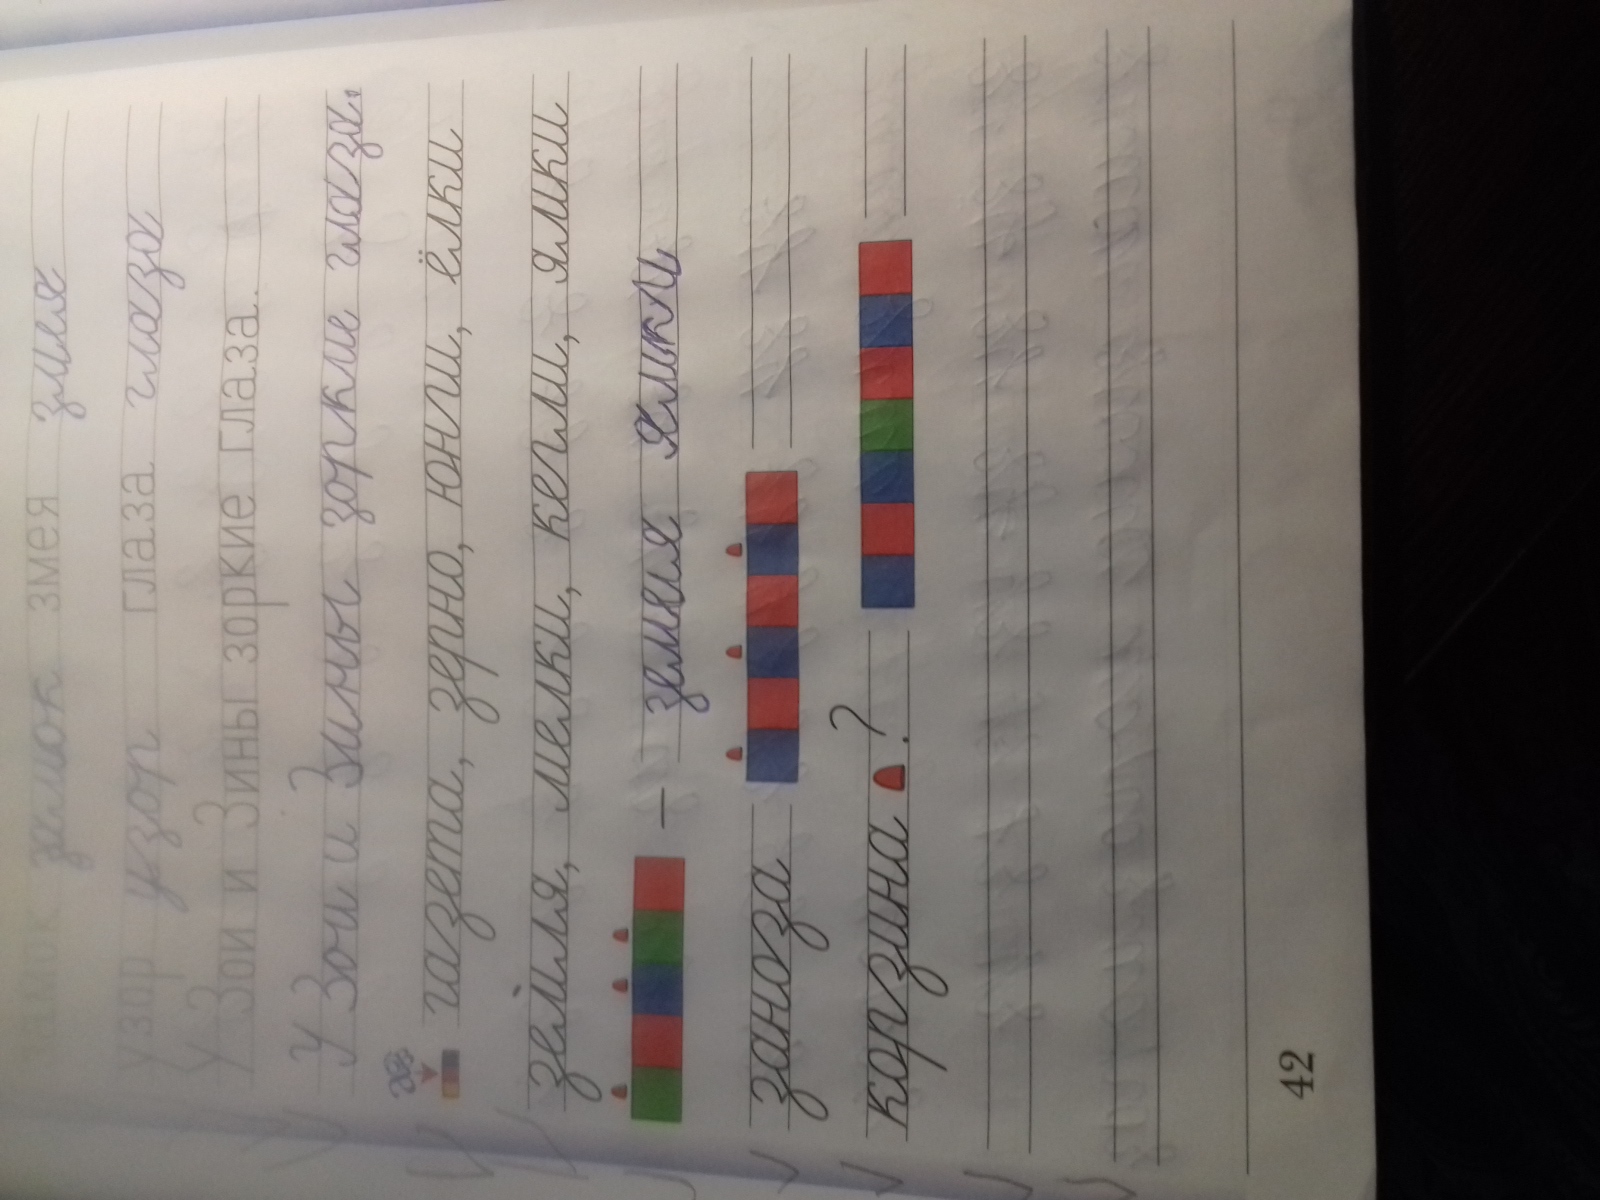 замок замок змея змея
узор узор глаза глаза
У Зои и Зины зоркие глаза.
У Зои и Зины зоркие глаза.
газета, зерно, юнги, ёлки
земля, мелки, кегли, ямки
— земля ямки
заноза
корзина ?
42